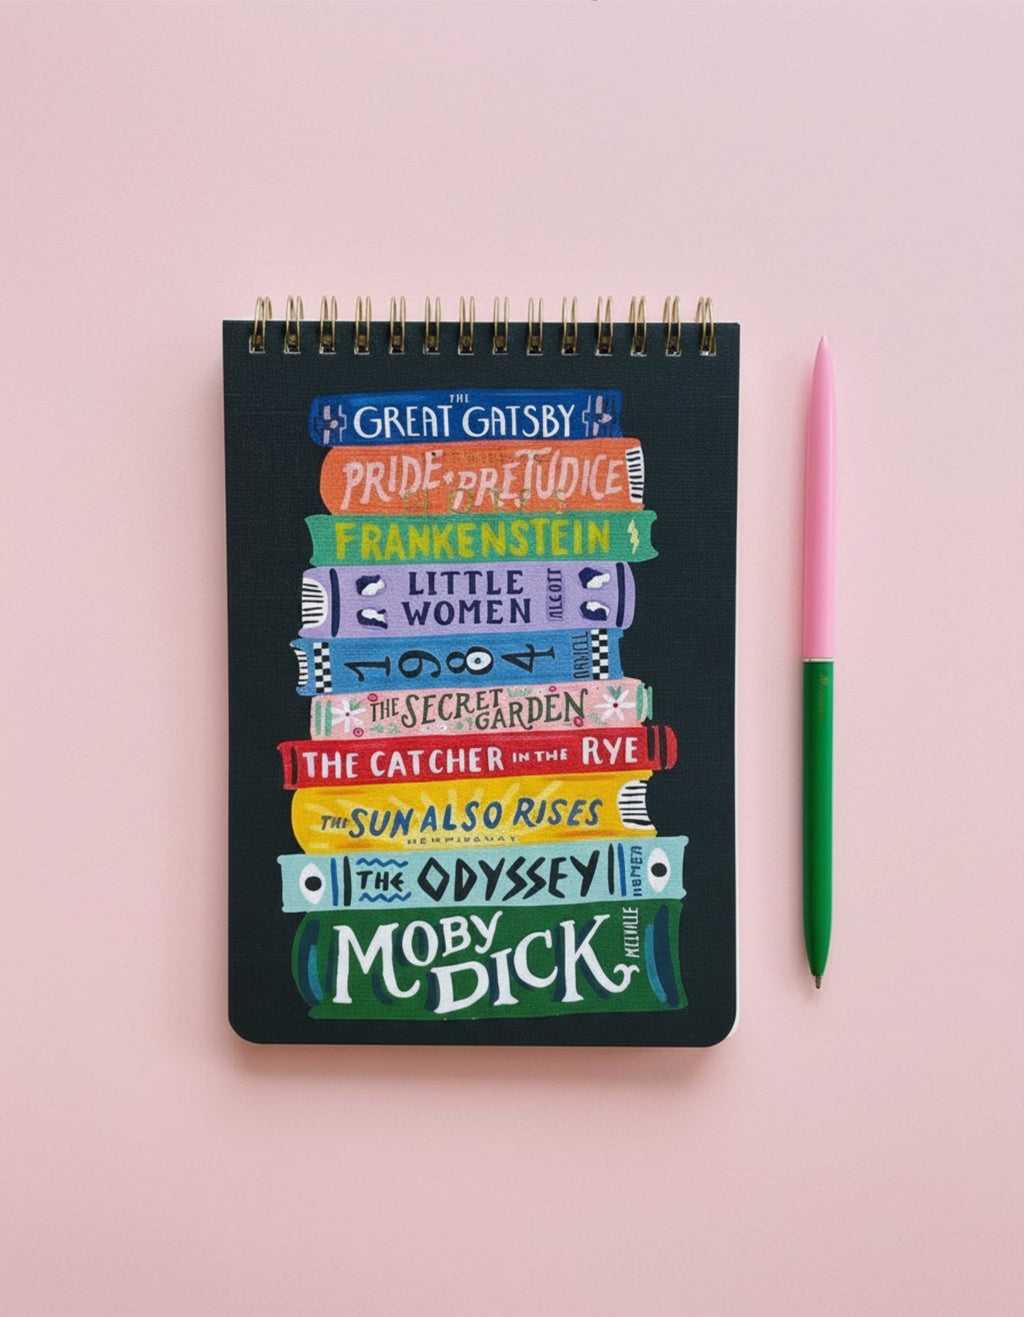 THE
GREAT GATSBY
PRIDE & PREJUDICE
FRANKENSTEIN
LITTLE
WOMEN
ALCOTT
1984
ORWELL
THE SECRET
GARDEN
THE CATCHER IN THE RYE
THE SUN ALSO RISES
THE ODYSSEY
HOMER
MOBY
DICK
MELVILLE